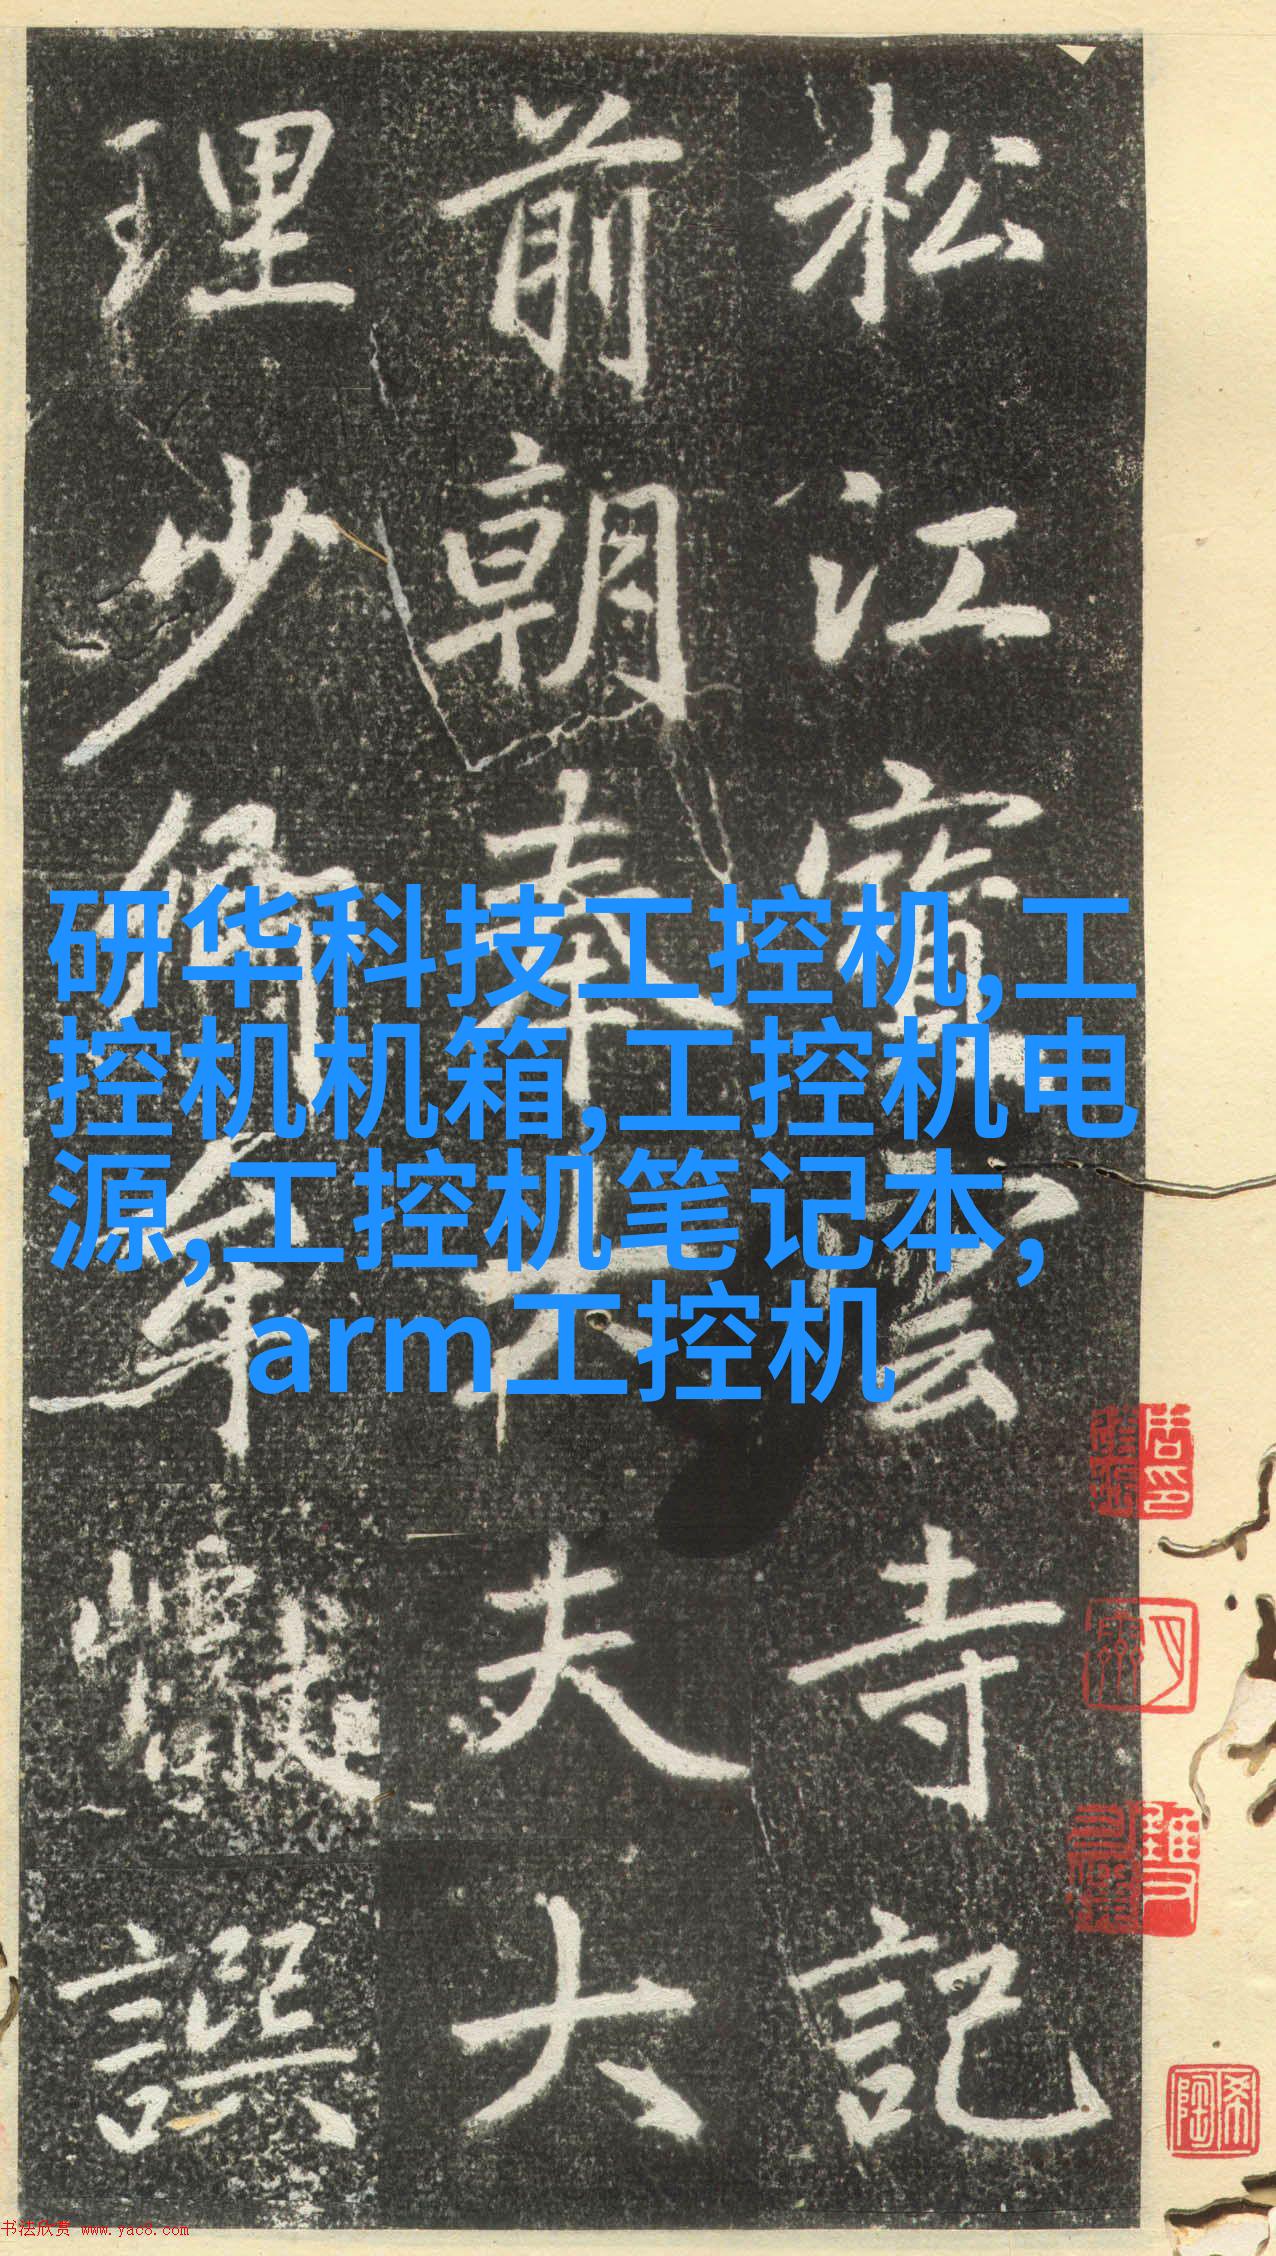 松江寶雲寺記
前朝奉大夫大
理少卿牟巘譔
研华科技工控机,工
控机机箱,工控机电
源,工控机笔记本,
arm工控机
希陶
书法欣赏 www.yac8.com